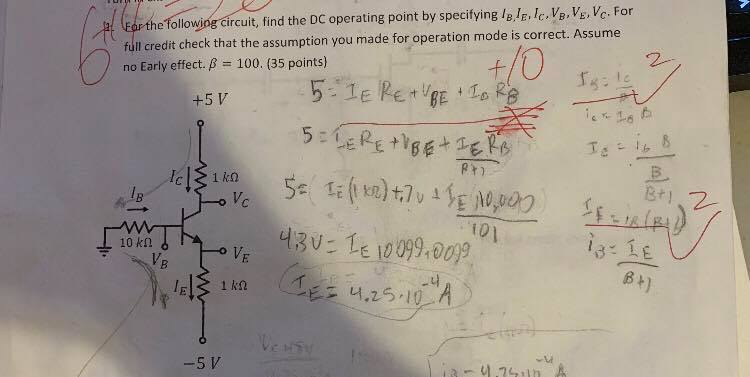 For the following circuit, find the DC operating point by specifying I_B, I_E, I_C, V_B, V_E, V_C. For
full credit check that the assumption you made for operation mode is correct. Assume
no Early effect. β = 100. (35 points)
+10
+5 V
I_C
1 kΩ
V_C
I_B
10 kΩ
V_B
V_E
I_E
1 kΩ
−5 V
5 = I_E R_E + V_BE + I_B R_B
5 = I_E R_E + V_BE + I_E R_B
B+1
5 = I_E (1 kΩ) + .7v + I_E 10,000
101
4.3V = I_E 10099.0099
I_E = 4.25·10^-4 A
2
I_B = i_c
B
i_c = I_B B
I_E = i_b B
B
B+1
2
I_E = i_B (B+1)
i_B = I_E
B+1